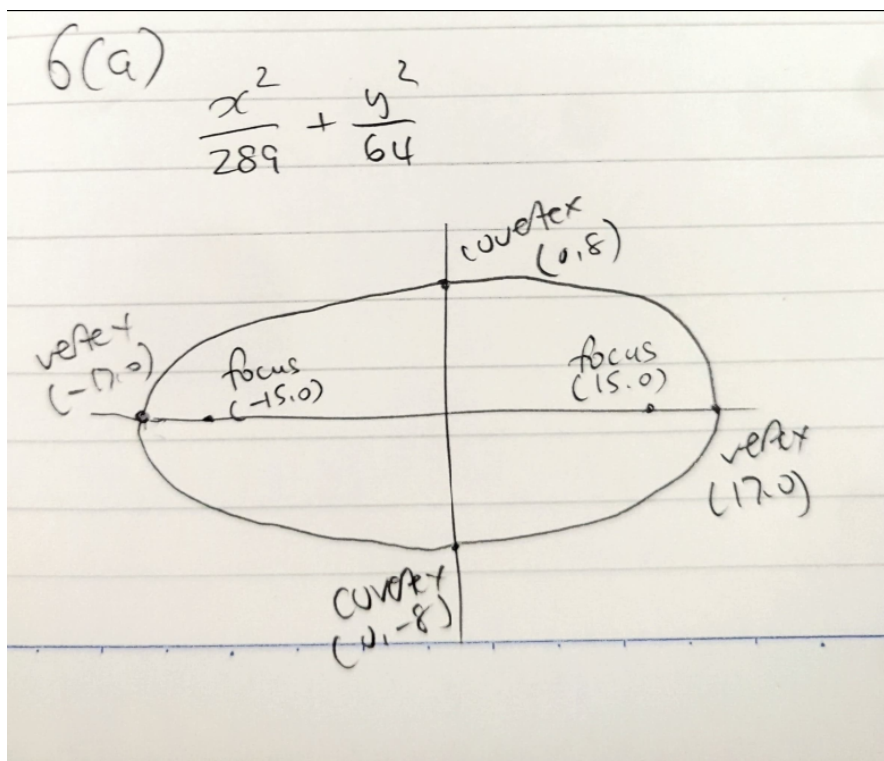 6(a)
x²/289 + y²/64
covertex
(0,8)
vertex
(-17,0)
focus
(-15,0)
focus
(15,0)
vertex
(17,0)
covertex
(0,-8)